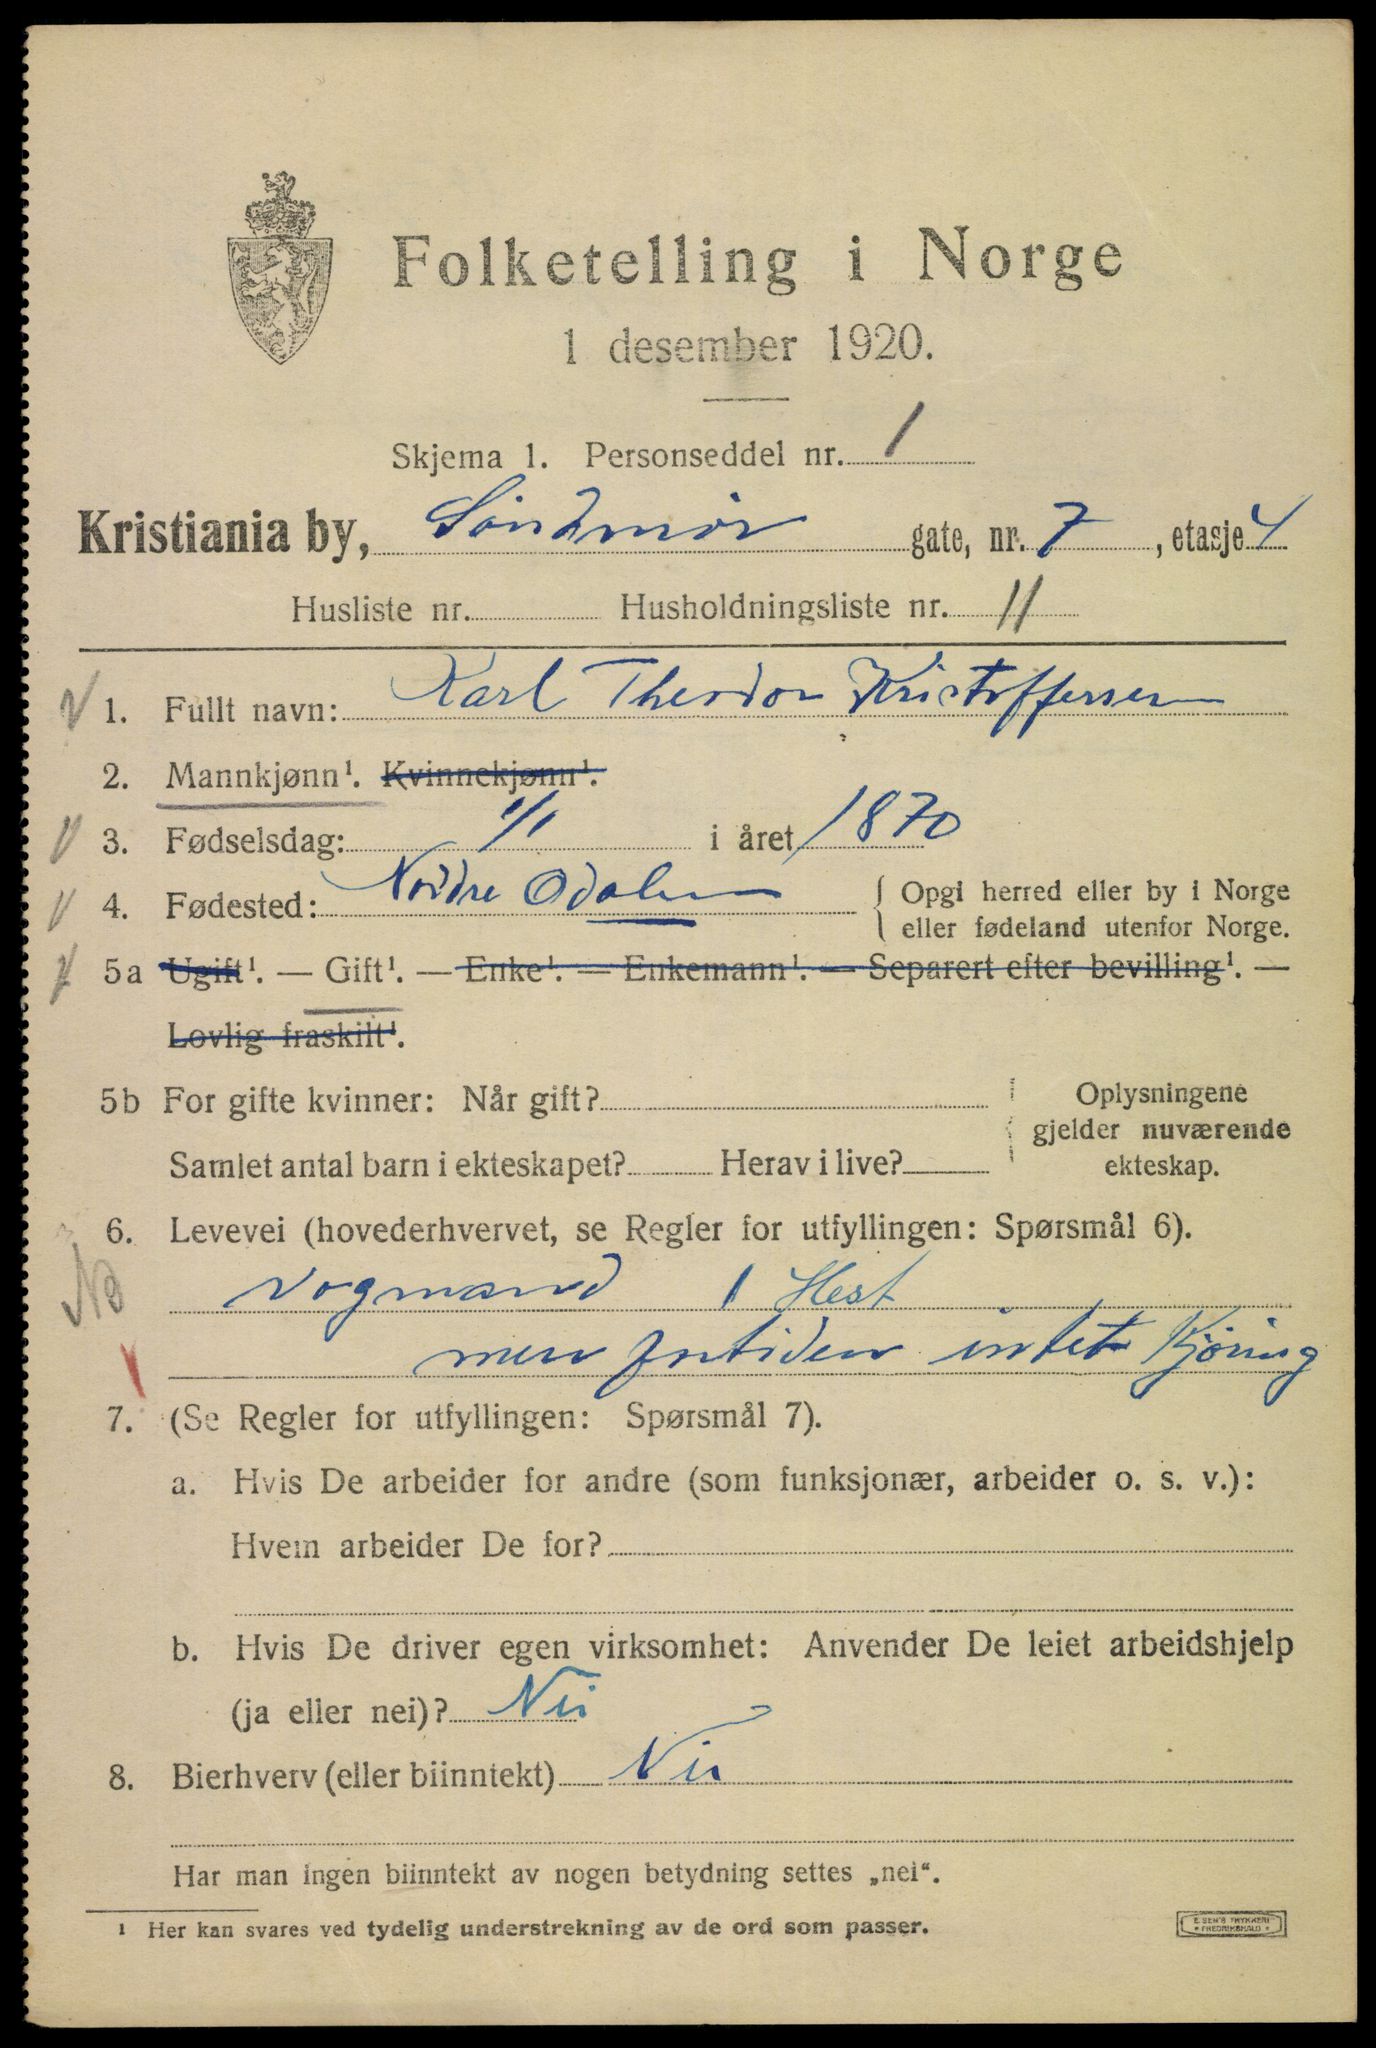 Folketelling i Norge
1 desember 1920.
Skjema 1. Personseddel nr. 1
Kristiania by, Söndmör gate, nr. 7, etasje 4
Husliste nr. Husholdningsliste nr. 11
1. Fullt navn: Karl Theodor Kristoffersen
2. Mannkjønn¹. Kvinnekjønn¹.
3. Fødselsdag: 1/1 i året 1870
4. Fødested: Nordre Odalen { Opgi herred eller by i Norge
eller fødeland utenfor Norge.
5a Ugift¹. — Gift¹. — Enke¹. — Enkemann¹. — Separert efter bevilling¹. —
Lovlig fraskilt¹.
5b For gifte kvinner: Når gift? Oplysningene
gjelder nuværende
Samlet antal barn i ekteskapet? Herav i live? ekteskap.
6. Levevei (hovederhvervet, se Regler for utfyllingen: Spørsmål 6).
Vogmand 1 Hest
men fortiden intet Kjöring
7. (Se Regler for utfyllingen: Spørsmål 7).
a. Hvis De arbeider for andre (som funksjonær, arbeider o. s. v.):
Hvem arbeider De for?
b. Hvis De driver egen virksomhet: Anvender De leiet arbeidshjelp
(ja eller nei)? Nei
8. Bierhverv (eller biinntekt) Nei
Har man ingen biinntekt av nogen betydning settes „nei“.
¹ Her kan svares ved tydelig understrekning av de ord som passer.
E. SEM'S TRYKKERI
FREDRIKSHALD